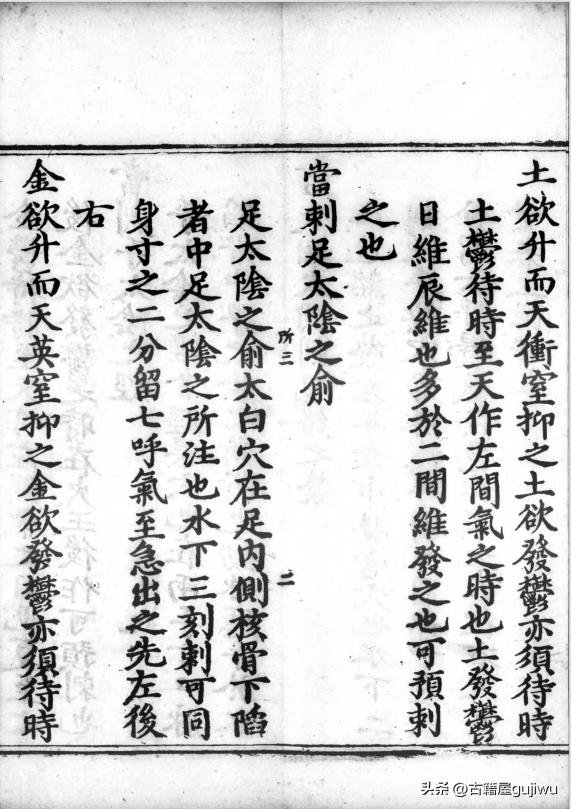 土欲升而天衝窒抑之土欲發鬱亦須待時
土鬱待時至天作左間氣之時也土發鬱
日維辰維也多於二間維發之也可預刺
之也
當刺足太陰之俞
足太陰之俞太白穴在足內側核骨下陷
者中足太陰之所注也水下三刻刺可同
身寸之二分留七呼氣至急出之先左後
右
金欲升而天英窒抑之金欲發鬱亦須待時
所三
二
头条 @古籍屋gujiwu